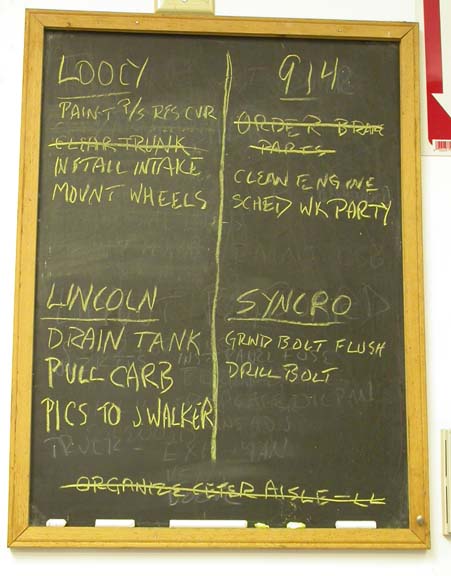 LOOCY
PAINT P/S RES CVR
CLEAR TRUNK
INSTALL INTAKE
MOUNT WHEELS
914
ORDER BRAKE
PARTS
CLEAN ENGINE
SCHED WK PARTY
LINCOLN
DRAIN TANK
PULL CARB
PICS TO J WALKER
SYNCRO
GRIND BOLT FLUSH
DRILL BOLT
TRUCK
ORGANIZE CETER AISLE - LL